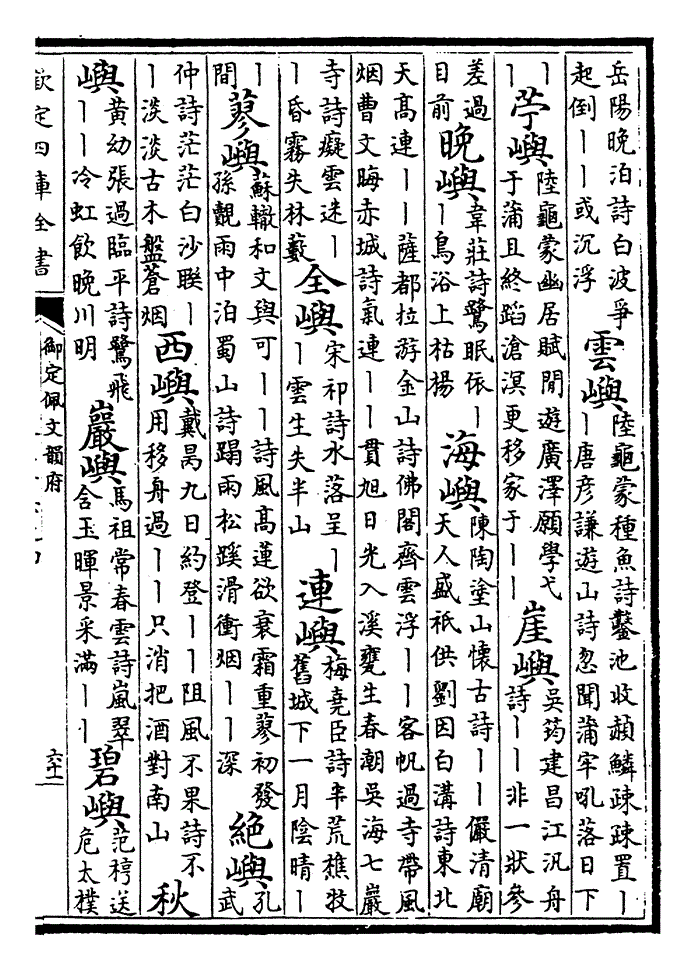 岳陽晚泊詩白波爭起倒丨丨或沉浮 雲嶼 陸龜蒙種魚詩鑿池收赬鱗疎疎置丨丨唐彥謙遊山詩忽聞蒲牢吼落日下
丨丨 苧嶼 陸龜蒙幽居賦閒遊廣澤願學弋于蒲且終蹈滄溟更移家于丨丨 崖嶼 吳筠建昌江汎舟詩丨丨非一狀參
差過目前 晚嶼 韋莊詩鷺眠依丨丨鳥浴上枯楊 海嶼 陳陶塗山懷古詩丨丨儼清廟天人盛祇供劉因白溝詩東北
天高連丨丨薩都拉游金山詩佛閣齊雲浮丨丨客帆過寺帶風烟曹文晦赤城詩氣連丨丨貫旭日光入溪甕生春潮吳海七巖
寺詩癡雲迷丨丨昏霧失林藪 全嶼 宋祁詩水落呈丨丨雲生失半山 連嶼 梅堯臣詩平荒樵牧舊城下一月陰晴丨
丨間 蓼嶼 蘇轍和文與可丨丨詩風高蓮欲衰霜重蓼初發孫覿雨中泊蜀山詩蹋雨松蹊滑衝烟丨丨深 絶嶼 孔武
仲詩茫茫白沙聯丨丨淡淡古木盤蒼烟 西嶼 戴昺九日約登丨丨阻風不果詩不用移舟過丨丨只消把酒對南山 秋
嶼 黄幼張過臨平詩鷺飛丨丨冷虹飲晚川明 巖嶼 馬祖常春雲詩嵐翠含玉暉景采滿丨丨 碧嶼 范梈送危太樸
欽定四庫全書
御定佩文韻府